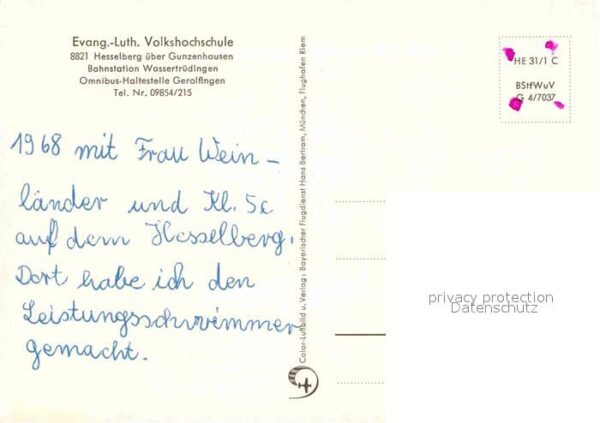 Evang.-Luth. Volkshochschule
8821 Hesselberg über Gunzenhausen
Bahnstation Wassertrüdingen
Omnibus-Haltestelle Gerolfingen
Tel. Nr. 09854/215
1968 mit Frau Wein-
länder und Kl. 5c
auf dem Hesselberg.
Dort habe ich den
Leistungsschwimmer
gemacht.
Color-Luftbild u. Verlag: Bayerischer Flugdienst Hans Bertram, München, Flughafen Riem
HE 31/1 C
BStfWuV
G 4/7037
privacy protection
Datenschutz